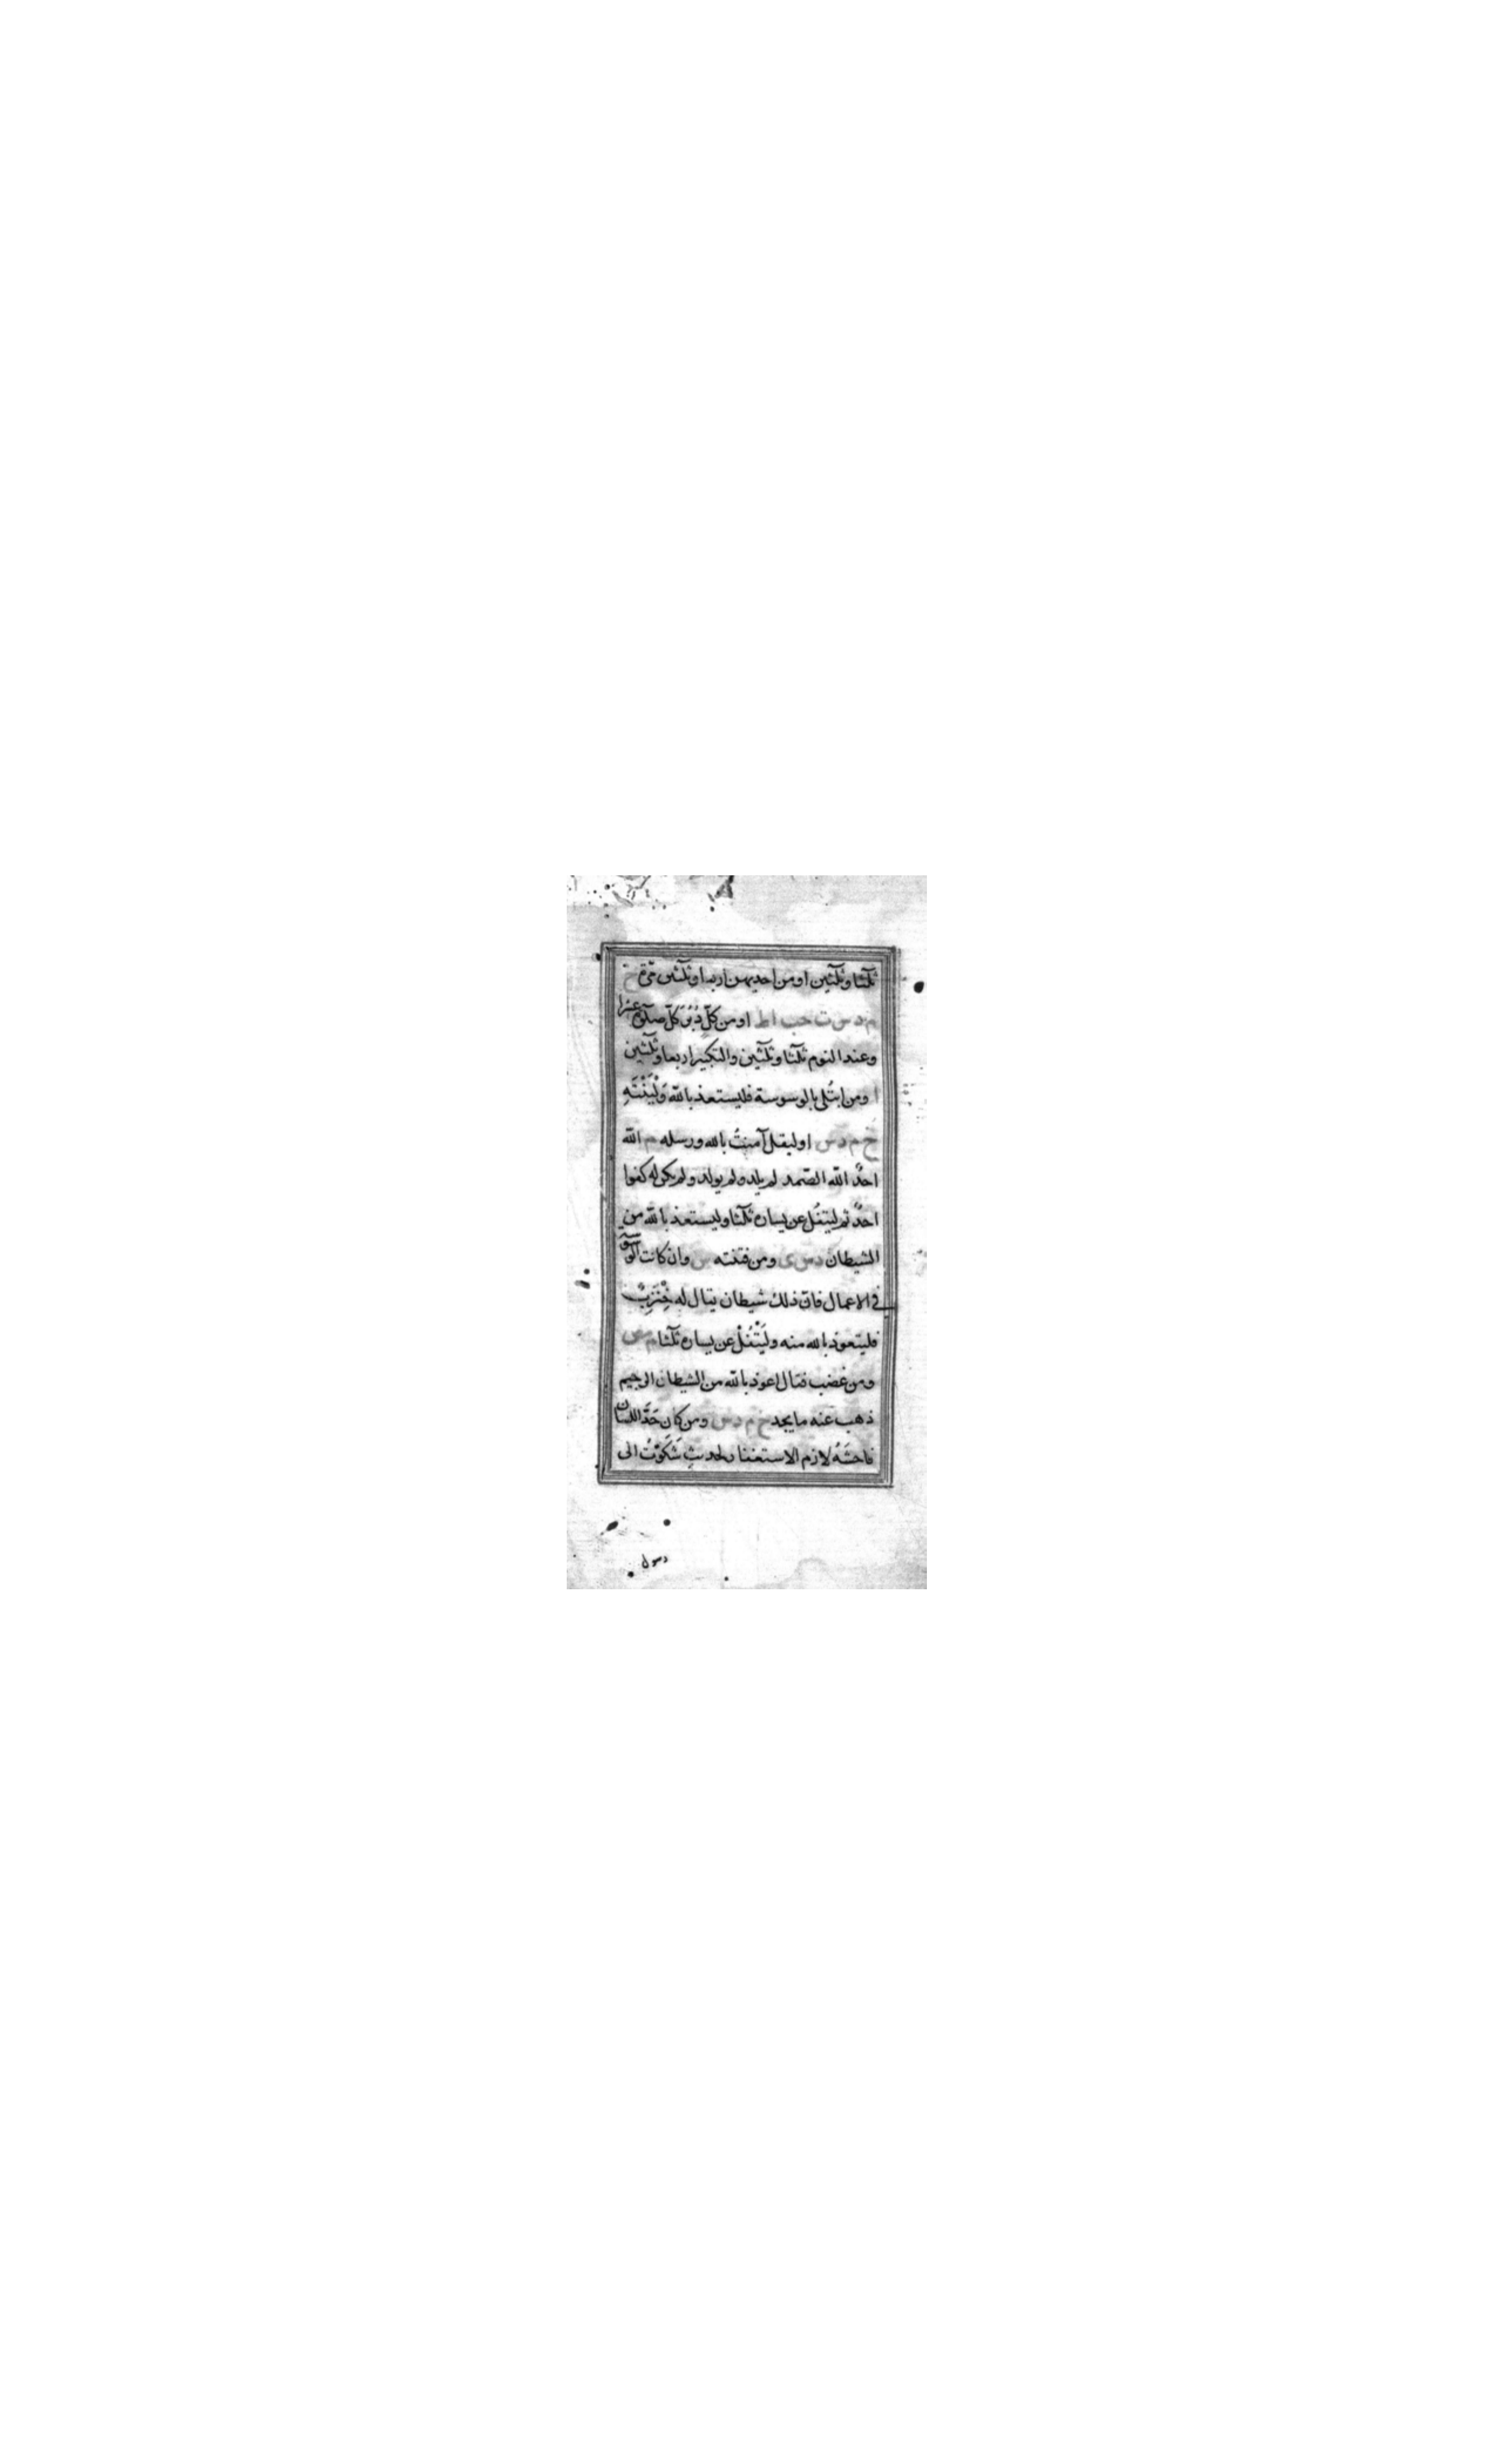 ثلٰثا وثلٰثين او من احديهن اربعا وثلٰثين مرة خ
م د س ت حب ا ط او من كلّ دُبُرِ كلّ صلٰوة عشرا
وعند النوم ثلٰثا وثلٰثين والتكبير اربعا وثلٰثين
ا ومن ابتُلى بالوسوسة فليستعذ بالله وَلْيَنْتَهِ
خ م د س او ليقل آمنتُ بالله ورسله م الله
احدٌ الله الصّمد لم يلد ولم يولد ولم يكن له كفوا
احدٌ ثم ليتفُل عن يساره ثلٰثا وليستعذ بالله من
الشيطان د س ى ومن فتنته س وان كانت الوسوسة
في الاعمال فانّ ذلك شيطان يقال له خِنْزِبٌ
فليتعوذ بالله منه ولْيَتْفُلْ عن يساره ثلٰثا م مص
ومن غضب فقال اعوذ بالله من الشيطان الرجيم
ذهب عنه ما يجد خ م د س ومن كان حَدَّ اللسان
فاحشَهُ لازم الاستغفار لحديث شَكَوْتُ الى
رسول